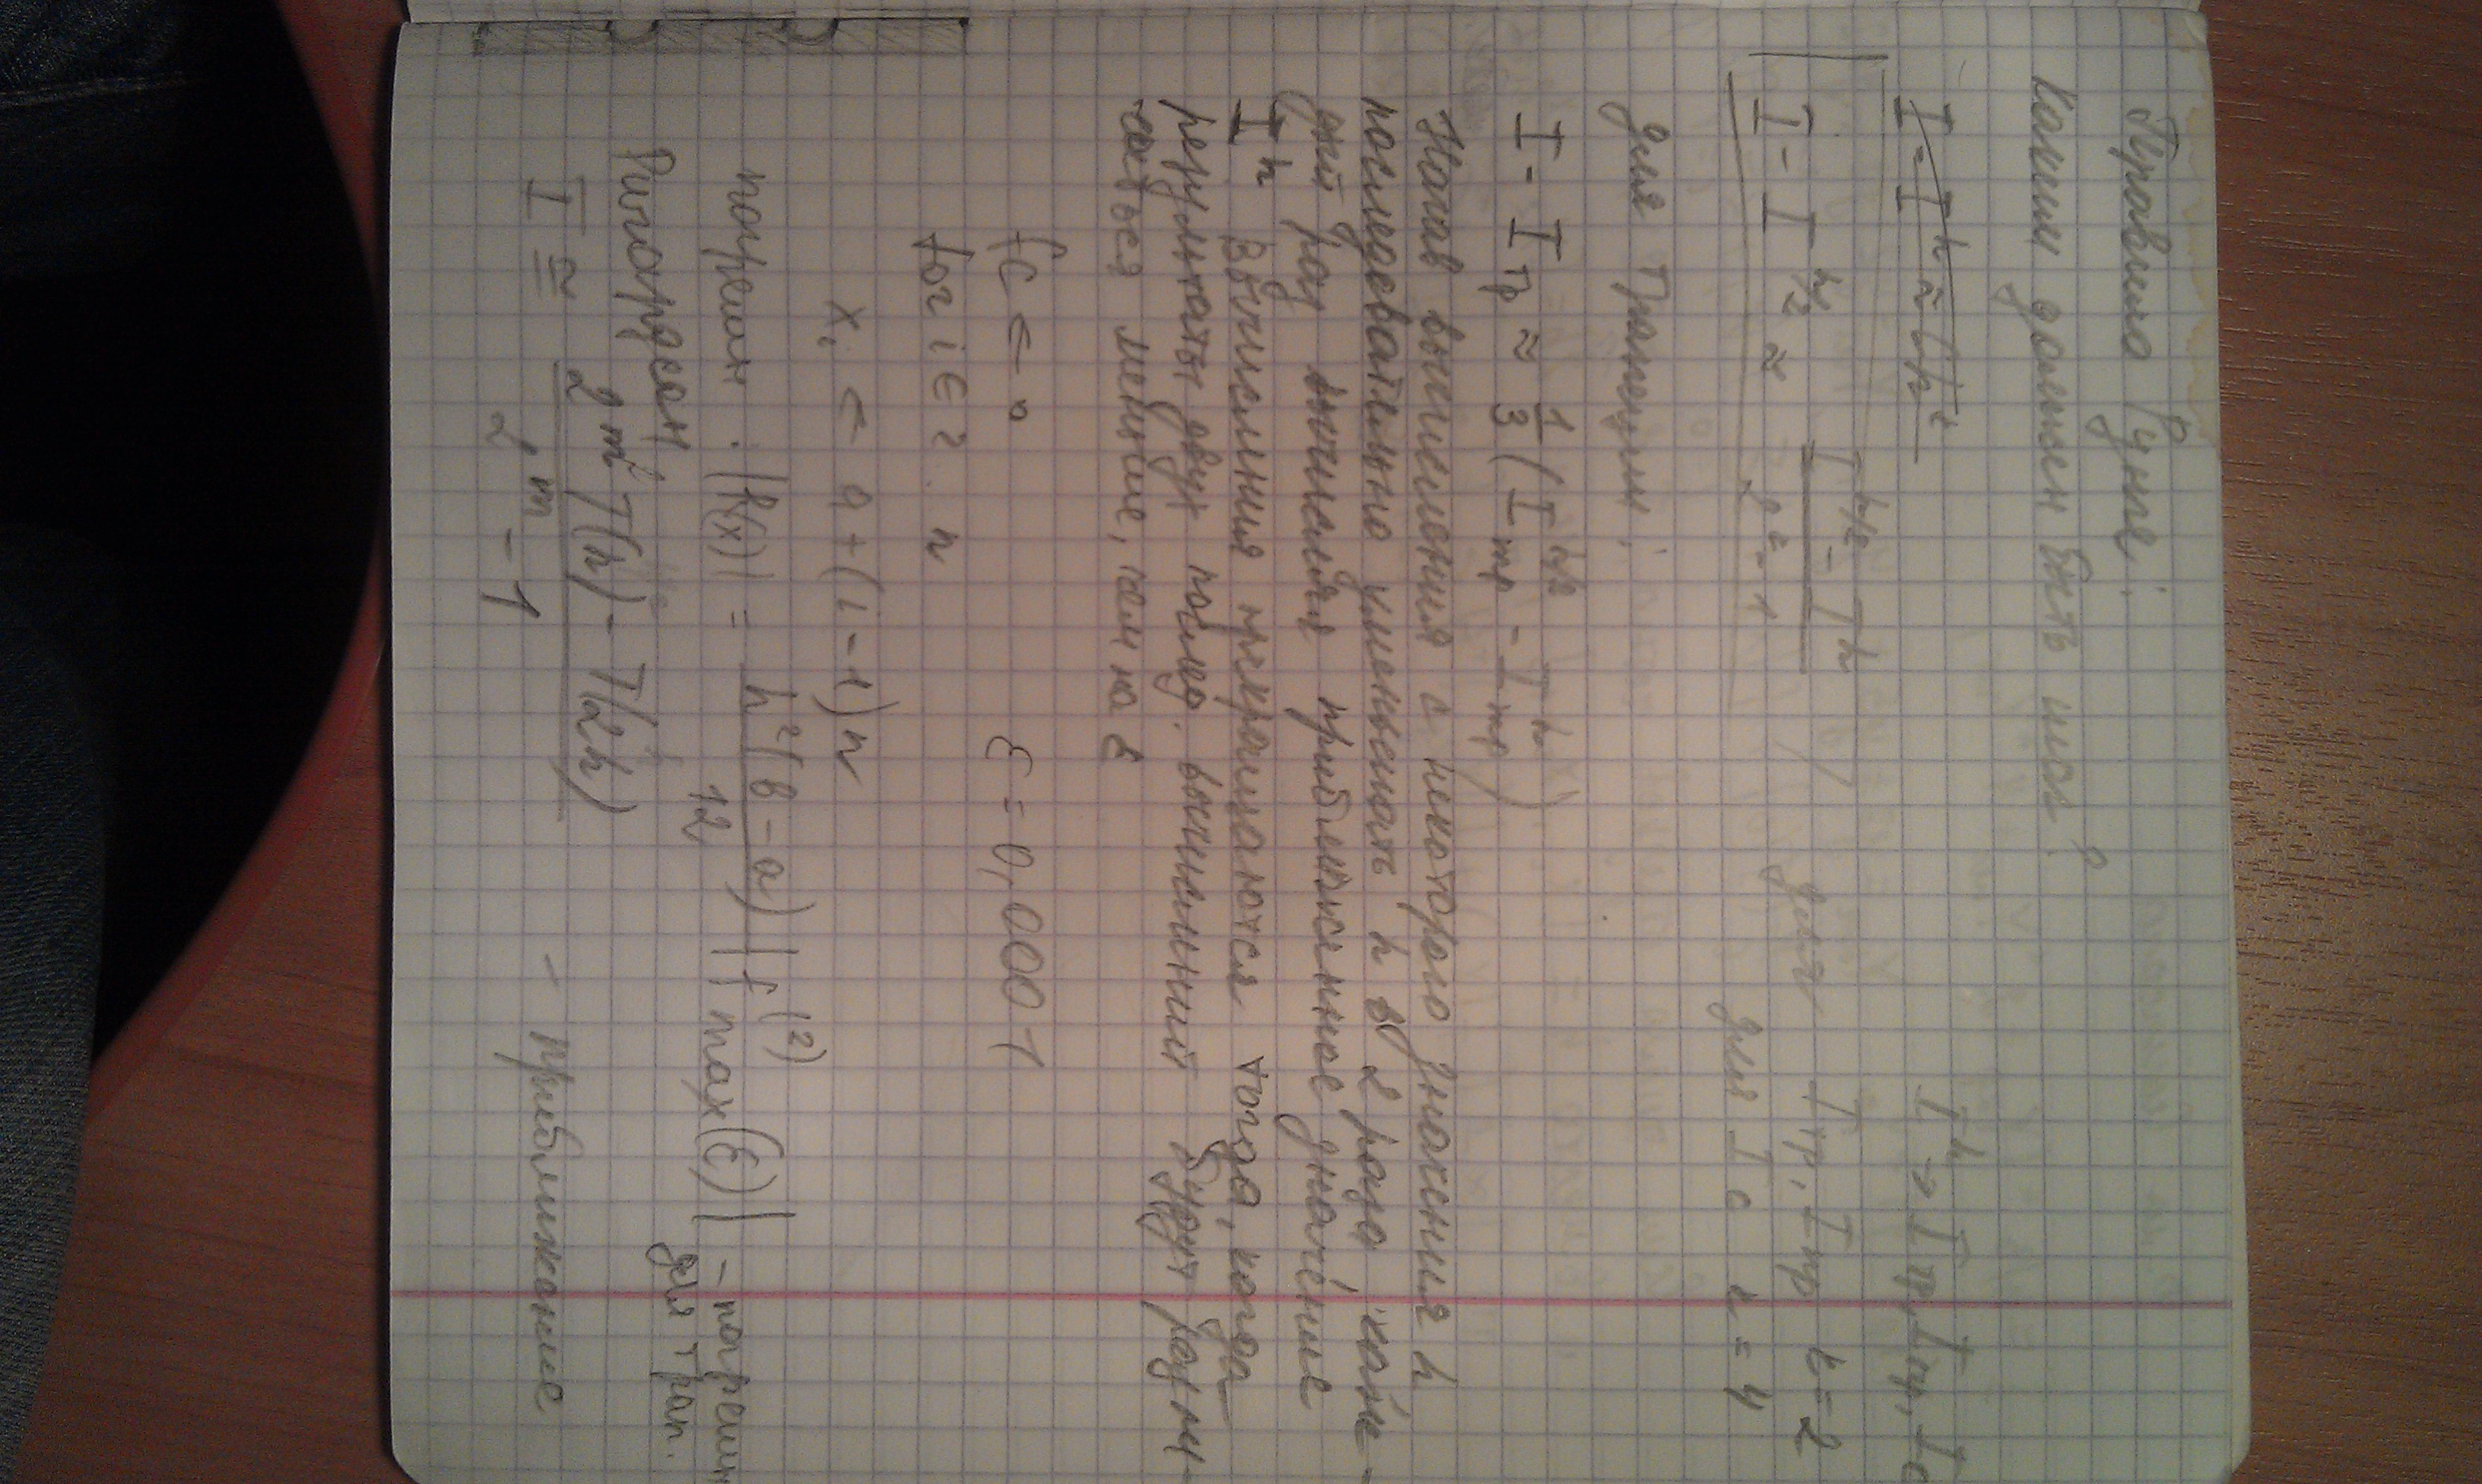 Правило Рунге:
Каким должен быть шаг?
I - Iʰ ≈ Chᵏ Iʰ → I тр, I пр, I с
I - I^{h/2} ≈ \frac{I^{h/2} - I^{h}}{2^{k} - 1} для I тр, I пр k = 2
для I с k = 4
для трапеции:
I - I тр ≈ \frac{1}{3} (I^{h/2} тр - I^{h} тр)
Начав вычисления с некоторого значения h
последовательно уменьшать h в 2 раза каж-
дый раз вычисляя приближенное значение
Iʰ. Вычисления прекращаются тогда, когда
результаты двух послед. вычислений будут разли-
чаться меньше, чем на ε
fc ← 0 ε = 0,0001
for i ∈ 2 n
xᵢ ← a + (i - 1) h
погрешн: |R(x)| = \frac{h²(b - a)}{12} |f⁽²⁾ max(ε)| - погрешн для трап.
Ричардсон
I ≅ \frac{2^{m} T(h) - T(2h)}{2^{m} - 1} - приближение